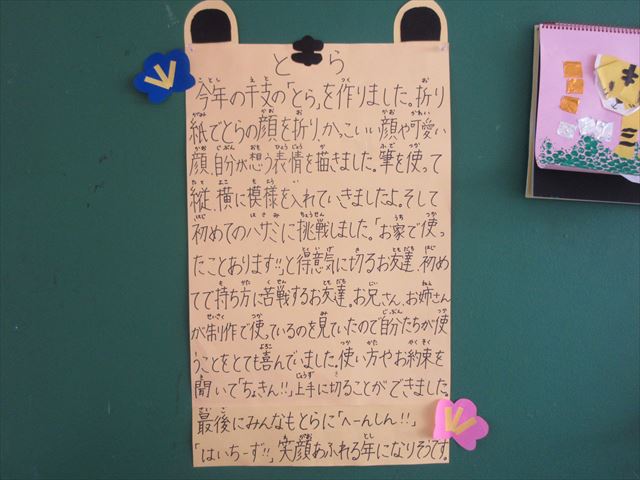 とら
今年の干支の「とら」を作りました。折り
紙でとらの顔を折り、かっこいい顔や可愛い
顔、自分が想う表情を描きました。筆を使って
縦、横に模様を入れていきましたよ。そして
初めてのハサミに挑戦しました。「お家で使っ
たことあります!!」と得意気に切るお友達、初め
てで持ち方に苦戦するお友達。お兄さん、お姉さん
が制作で使っているのを見ていたので自分たちが使
うことをとても喜んでいました。使い方やお約束を
聞いて「ちょきん!!」上手に切ることができました。
最後にみんなもとらに「へーんしん!!」
「はいちーず!!」笑顔あふれる年になりそうです。